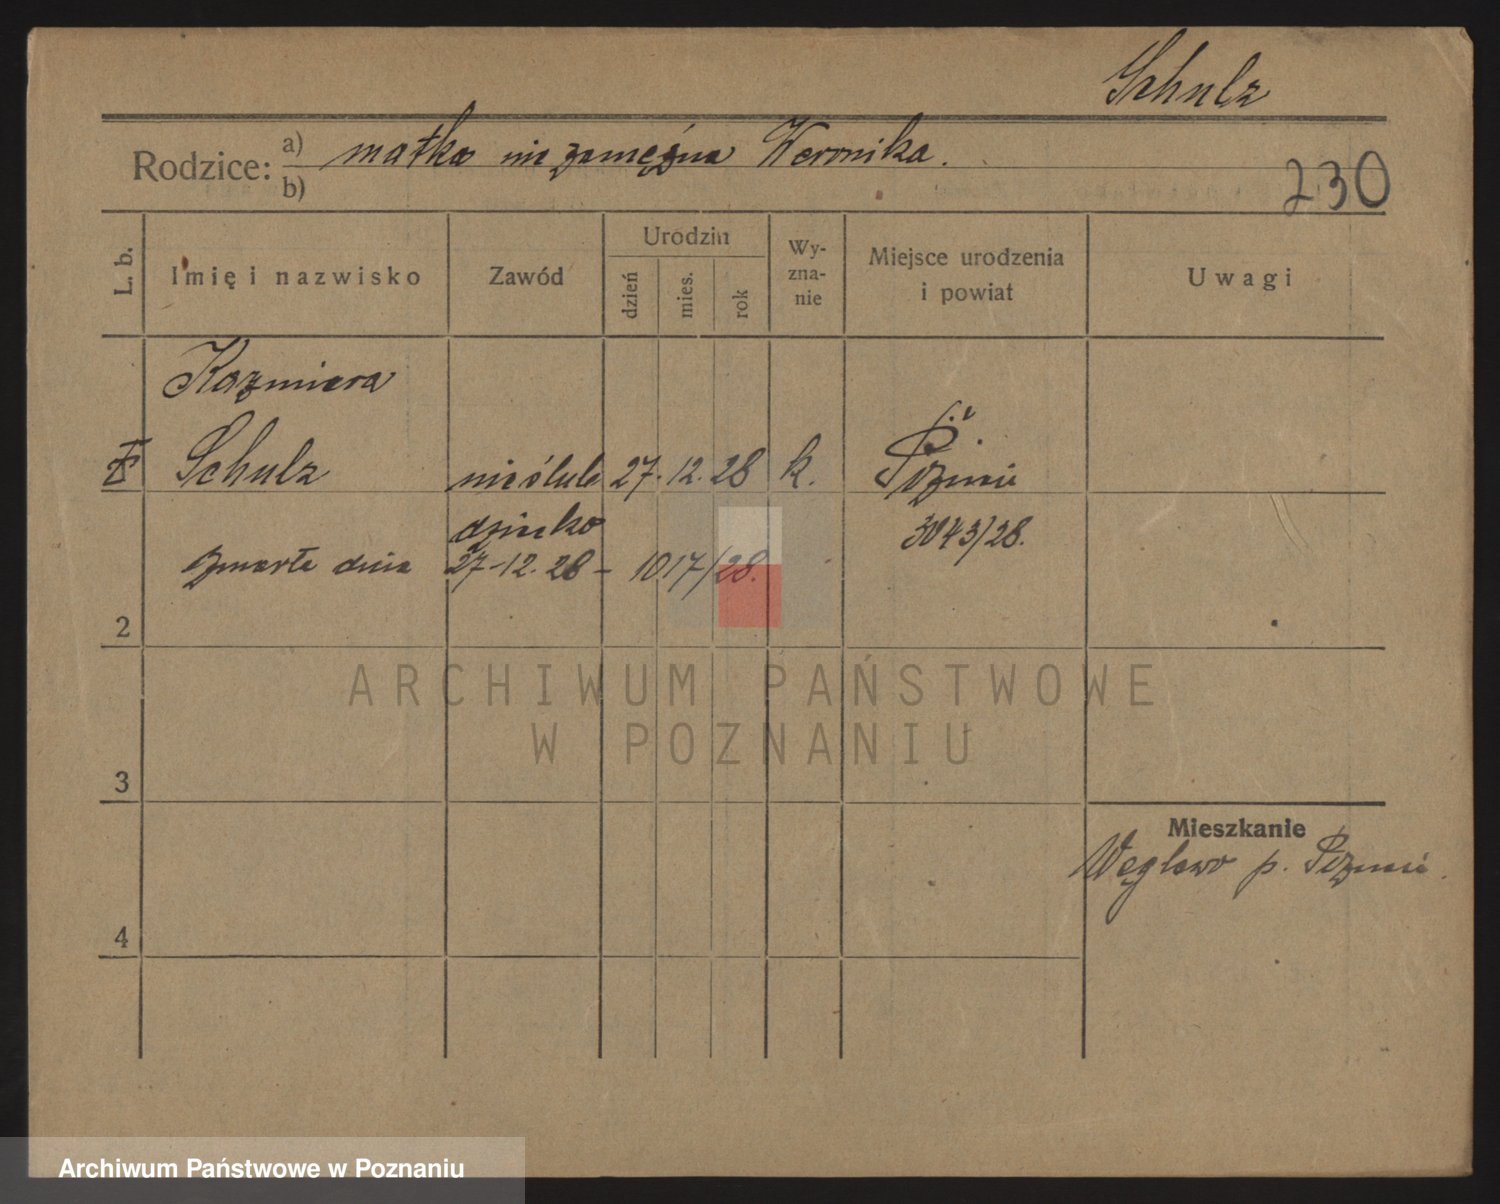 Schulz
Rodzice: a) matka nie zamężna Weronika.
b)
230
L. b.
Imię i nazwisko
Zawód
Urodzin
dzień
mies.
rok
Wy-
zna-
nie
Miejsce urodzenia
i powiat
Uwagi
Kazmiera
Schulz nieślub 27. 12. 28 k.
dziecko
3043/28.
zmarło dnia 27-12. 28 - 1017/28.
2
ARCHIWUM PAŃSTWOWE
W POZNANIU
3
Mieszkanie
Węglewo p.
4
Archiwum Państwowe w Poznaniu